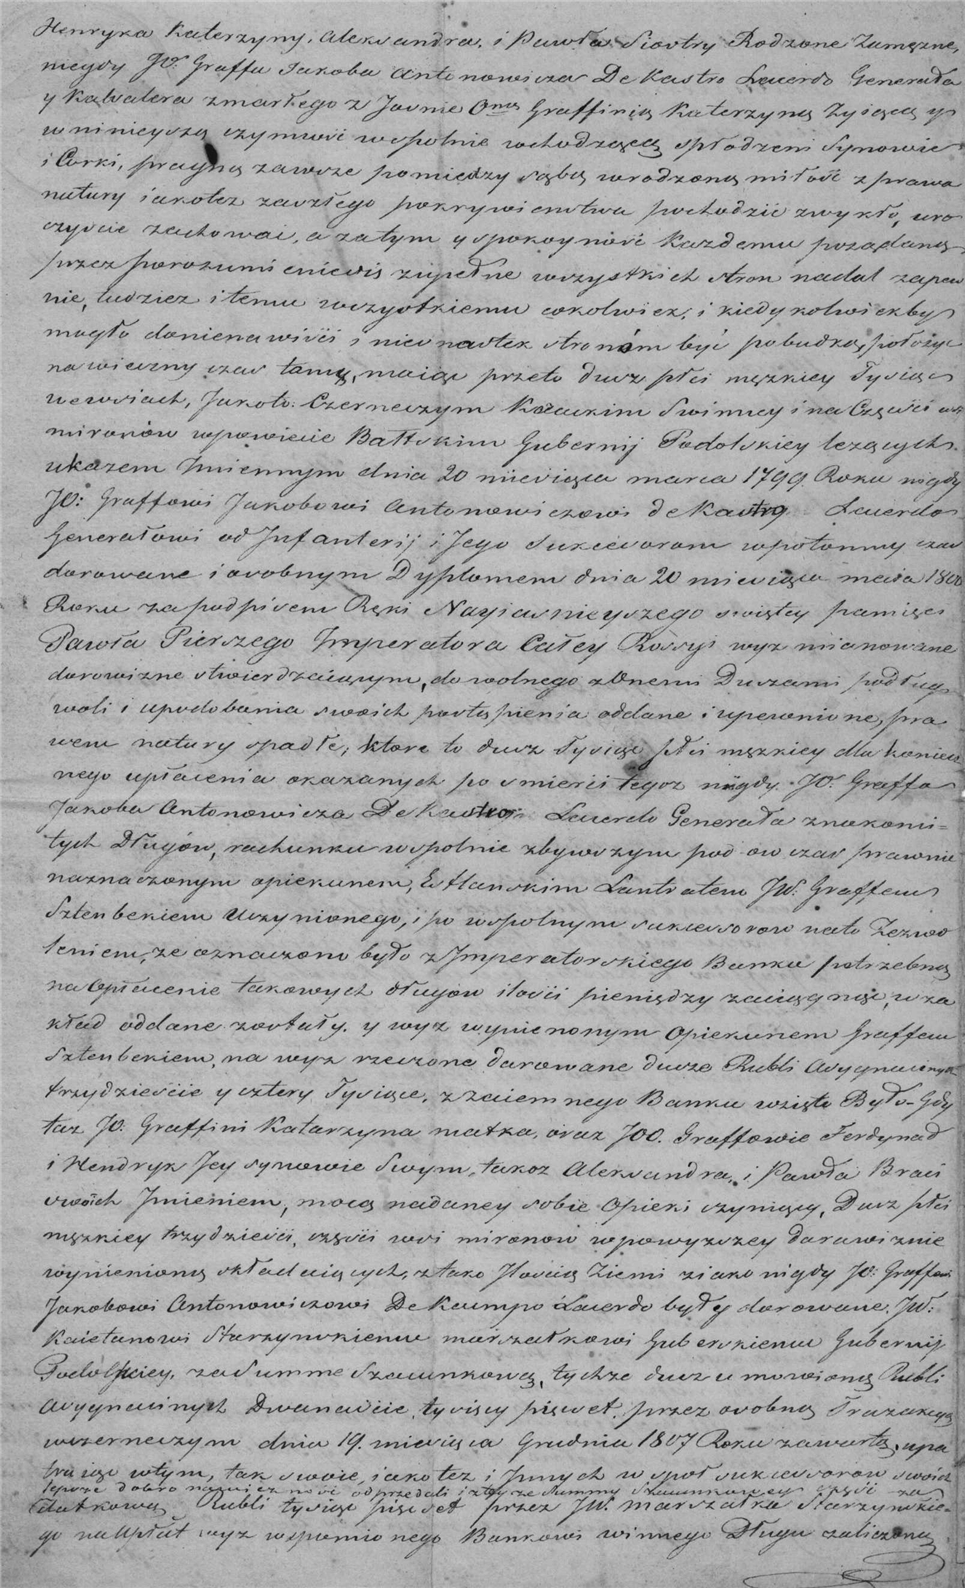 Henryka Katerzyny, Alexandra, i Pawła Siostry Rodzone Zamęzne,
niegdy JW. Graffa Jakoba Antonowicza De Kastro Lacerdo Generała
y Kawalera zmarłego z Jasnie Oną Graffinią Katerzyną żyiącą y
w ninieyszą czynność wespolnie wchodzącą spłodzeni Synowie
i Corki, pragną zawsze pomiędzy sąbą wrodzoną miłość z prawa
natury iakotez zaszłego pokrywienstwa pochodzić zwykłą, uro
czyscie zachować, a zatym y spokoyność kazdemu pożądaną
przez porozumienie się zupełne wszystkich stron nadal zapew
nić, tudziez i temu wszystkiemu cokolwiek, i kiedykolwiek by
mogło do nienawiści i niesnastek stronóm być pobudką, położyć
na wieczny czas tamę, maiąc przeto dusz płci męzkiey Tysiąc
we wsiach, Jakoto: Czerneczym Kozackim Swinney i na Części wsi
mironów w powiecie Baltskim Gubernij Podolskiey lezących
ukazem Jmiennym dnia 20 miesiąca marca 1799 Roku niegdy
JW: Graffowi Jakobowi Antonowiczowi de Kastro Lacerdo
Generałowi od Jnfanterij i Jego Sukcessorom w potomny czas
darowane i osobnym Dyplomem dnia 20 miesiąca maia 1800
Roku za podpisem Ręki Nayiasnieyszego swiętey pamięci
Pawła Pierszego Jmperatora Całey Rossyi wyz mianowane
darowizne stwierdzaiącym, do wolnego z Onemi Duszami podług
woli i upodobania swoich postąpienia oddane i upewnione, pra
wem natury spadłe, ktore to dusz tysiąc płci męzkiey dla koniecz
nego upłacenia okazanych po smierci tegoz niegdy JW. Graffa
Jakoba Antonowicza De Kastro Lacerdo Generała znakomi=
tych Długów, rachunku wspolnie z bywszym pod ow czas prawnie
naznaczonym opiekunem, Estlanskim Lantratem JW. Graffem
Sztenbekiem Uczynionego, i po wspolnym sukcessorow nato Zezwo
leniem, ze oznaczono było z Jmperatorskiego Banku potrzebną
na Opłacenie takowych długow ilości pieniędzy zaciągnąć, w za
kład oddane zostały. y wyz wymienonym Opiekunem Graffem
Sztenbekiem, na wyz rzeczone darowane dusze Rubli Assygnacynych
trzydziescie y cztery Tysiące, z zaiemnego Banku wzięto Było. Gdy
taz JW. Graffini Katarzyna matka, oraz JOO. Graffowie Ferdynad
i Hendryk Jey synowie Swym, takoz Alexandra, i Pawła Braci
swoich Jmieniem, mocą nadaney sobie Opieki czyniący, Dusz płci
męzkiey trzydziesci, części wsi mironow w powyzszey darawiznie
wymienioną składaiących, z tako Jloscią Ziemi z iako nigdy JW: Graffowi
Jakobowi Antonowiczowi De Kampo Lacerdo były darowane, JW:
Kaietanowi Starzynskiemu marszałkowi Guberskiemu Gubernij
Podolskiey, za Summe Szacunkową, tychze dusz umowioną Rubli
Assygnacinych Dwanascie tysięcy pięcset, przez osobną Tranzakcyą
w czerneczym dnia 19. miesiąca Grudnia 1807 Roku zawartą, upa
truiąc w tym, tak swoie, iako tez i Jnnych wspoł sukcessorow swoich
lepsze dobro naywiecznosć odprzedali i z tyże Summy Szacunkowey część za
datkową Rubli tysiąc pięcset przez JW. marszałka Starzynskie-
go na Upłat wyz wspomionego Bankowi winnego Długu zaliczoną